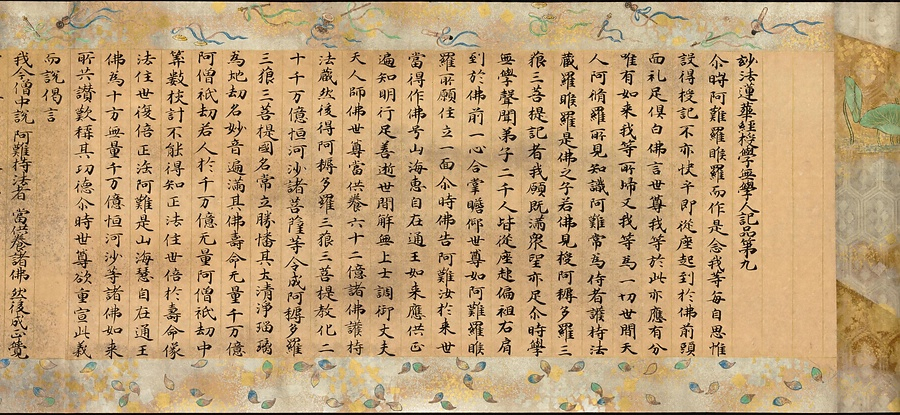 妙法蓮華經授學無學人記品第九
尒時阿難羅睺羅而作是念我等每自思惟
設得授記不亦快乎即從座起到於佛前頭
面礼足俱白佛言世尊我等於此亦應有分
唯有如来我等所歸又我等為一切世間天
人阿脩羅所見知識阿難常為侍者護持法
藏羅睺羅是佛之子若佛見授阿耨多羅三
藐三菩提記者我願既滿衆望亦足尒時學
無學聲聞弟子二千人皆從座起偏袒右肩
到於佛前一心合掌瞻仰世尊如阿難羅睺
羅所願住立一面尒時佛告阿難汝於来世
當得作佛号山海惠自在通王如来應供正
遍知明行足善逝世間解無上士調御丈夫
天人師佛世尊當供養六十二億諸佛護持
法藏然後得阿耨多羅三藐三菩提教化二
十千万億恒河沙諸菩薩等令成阿耨多羅
三藐三菩提國名常立勝幡其土清淨瑠璃
為地劫名妙音遍滿其佛壽命无量千万億
阿僧祇劫若人於千万億无量阿僧祇劫中
筭數挍計不能得知正法住世倍於壽命像
法住世復倍正法阿難是山海慧自在通王
佛為十方無量千万億恒河沙等諸佛如来
所共讃歎稱其功德尒時世尊欲重宣此義
而說偈言
我今僧中說 阿難持法者 當供養諸佛 然後成正覺